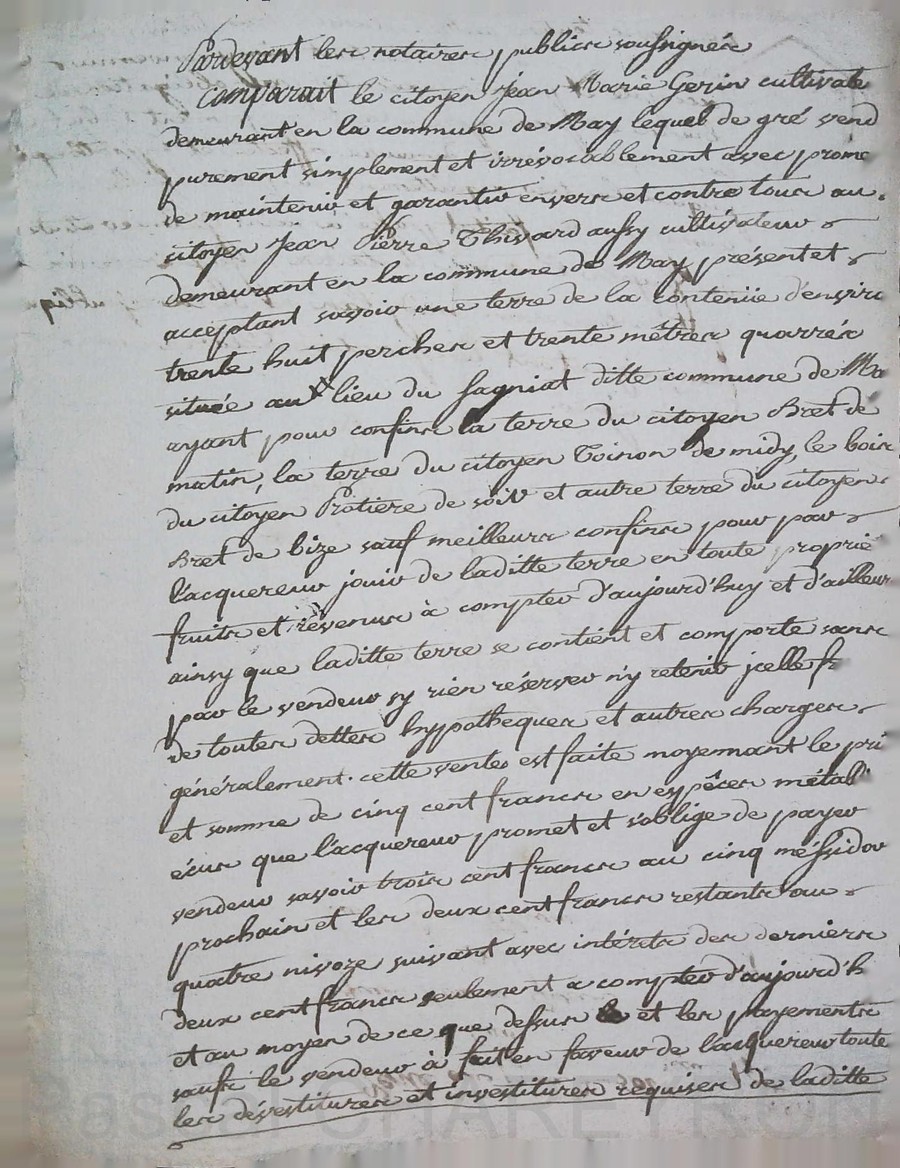 Pardevant les notaires publics soussignés
comparait le citoyen Jean Marie Gerin cultivate
demeurant en la commune de May lequel de gré vend
purement simplement et irrévocablement avec prome
de maintenir et garantir envers et contre tous au
citoyen Jean Pierre Thivard aussy cultivateur
demeurant en la commune de May présent et
acceptant savoir une terre de la contenüe d'enviro
trente huit perches et trente métres quarrés
située au lieu du fagniat ditte commune de Ma
ayant pour confins la terre du citoyen Bret de
matin, la terre du citoyen Toinon de midy, le bois
du citoyen Protiere de soir et autre terre du citoyen
Bret de bize sauf meilleurs confins pour par
l'acquereur jouir de laditte terre en toute proprié
fruits et révenus à compter d'aujourd'huy et d'ailleur
ainsy que laditte terre se contient et comporte sans
par le vendeur sy rien réserver n'y retenir jcelle fr
de toutes dettes hypotheques et autres charges
généralement. cette vente est faite moyennant le pri
et somme de cinq cent francs en espêces métal
écus que l'acquereur promet et s'oblige de payer
vendeur savoir trois cent francs au cinq méssidor
prochain et les deux cent francs restants au
quatre nivoze suivant avec intérêts des derniers
deux cent francs seulement a compter d'aujourd'h
et au moyen de ce que dessus et les payements
saufs le vendeur à fait en faveur de l'acquereur toute
les dévestitures et investitures requises de laditte
Pascal CHAREYRON